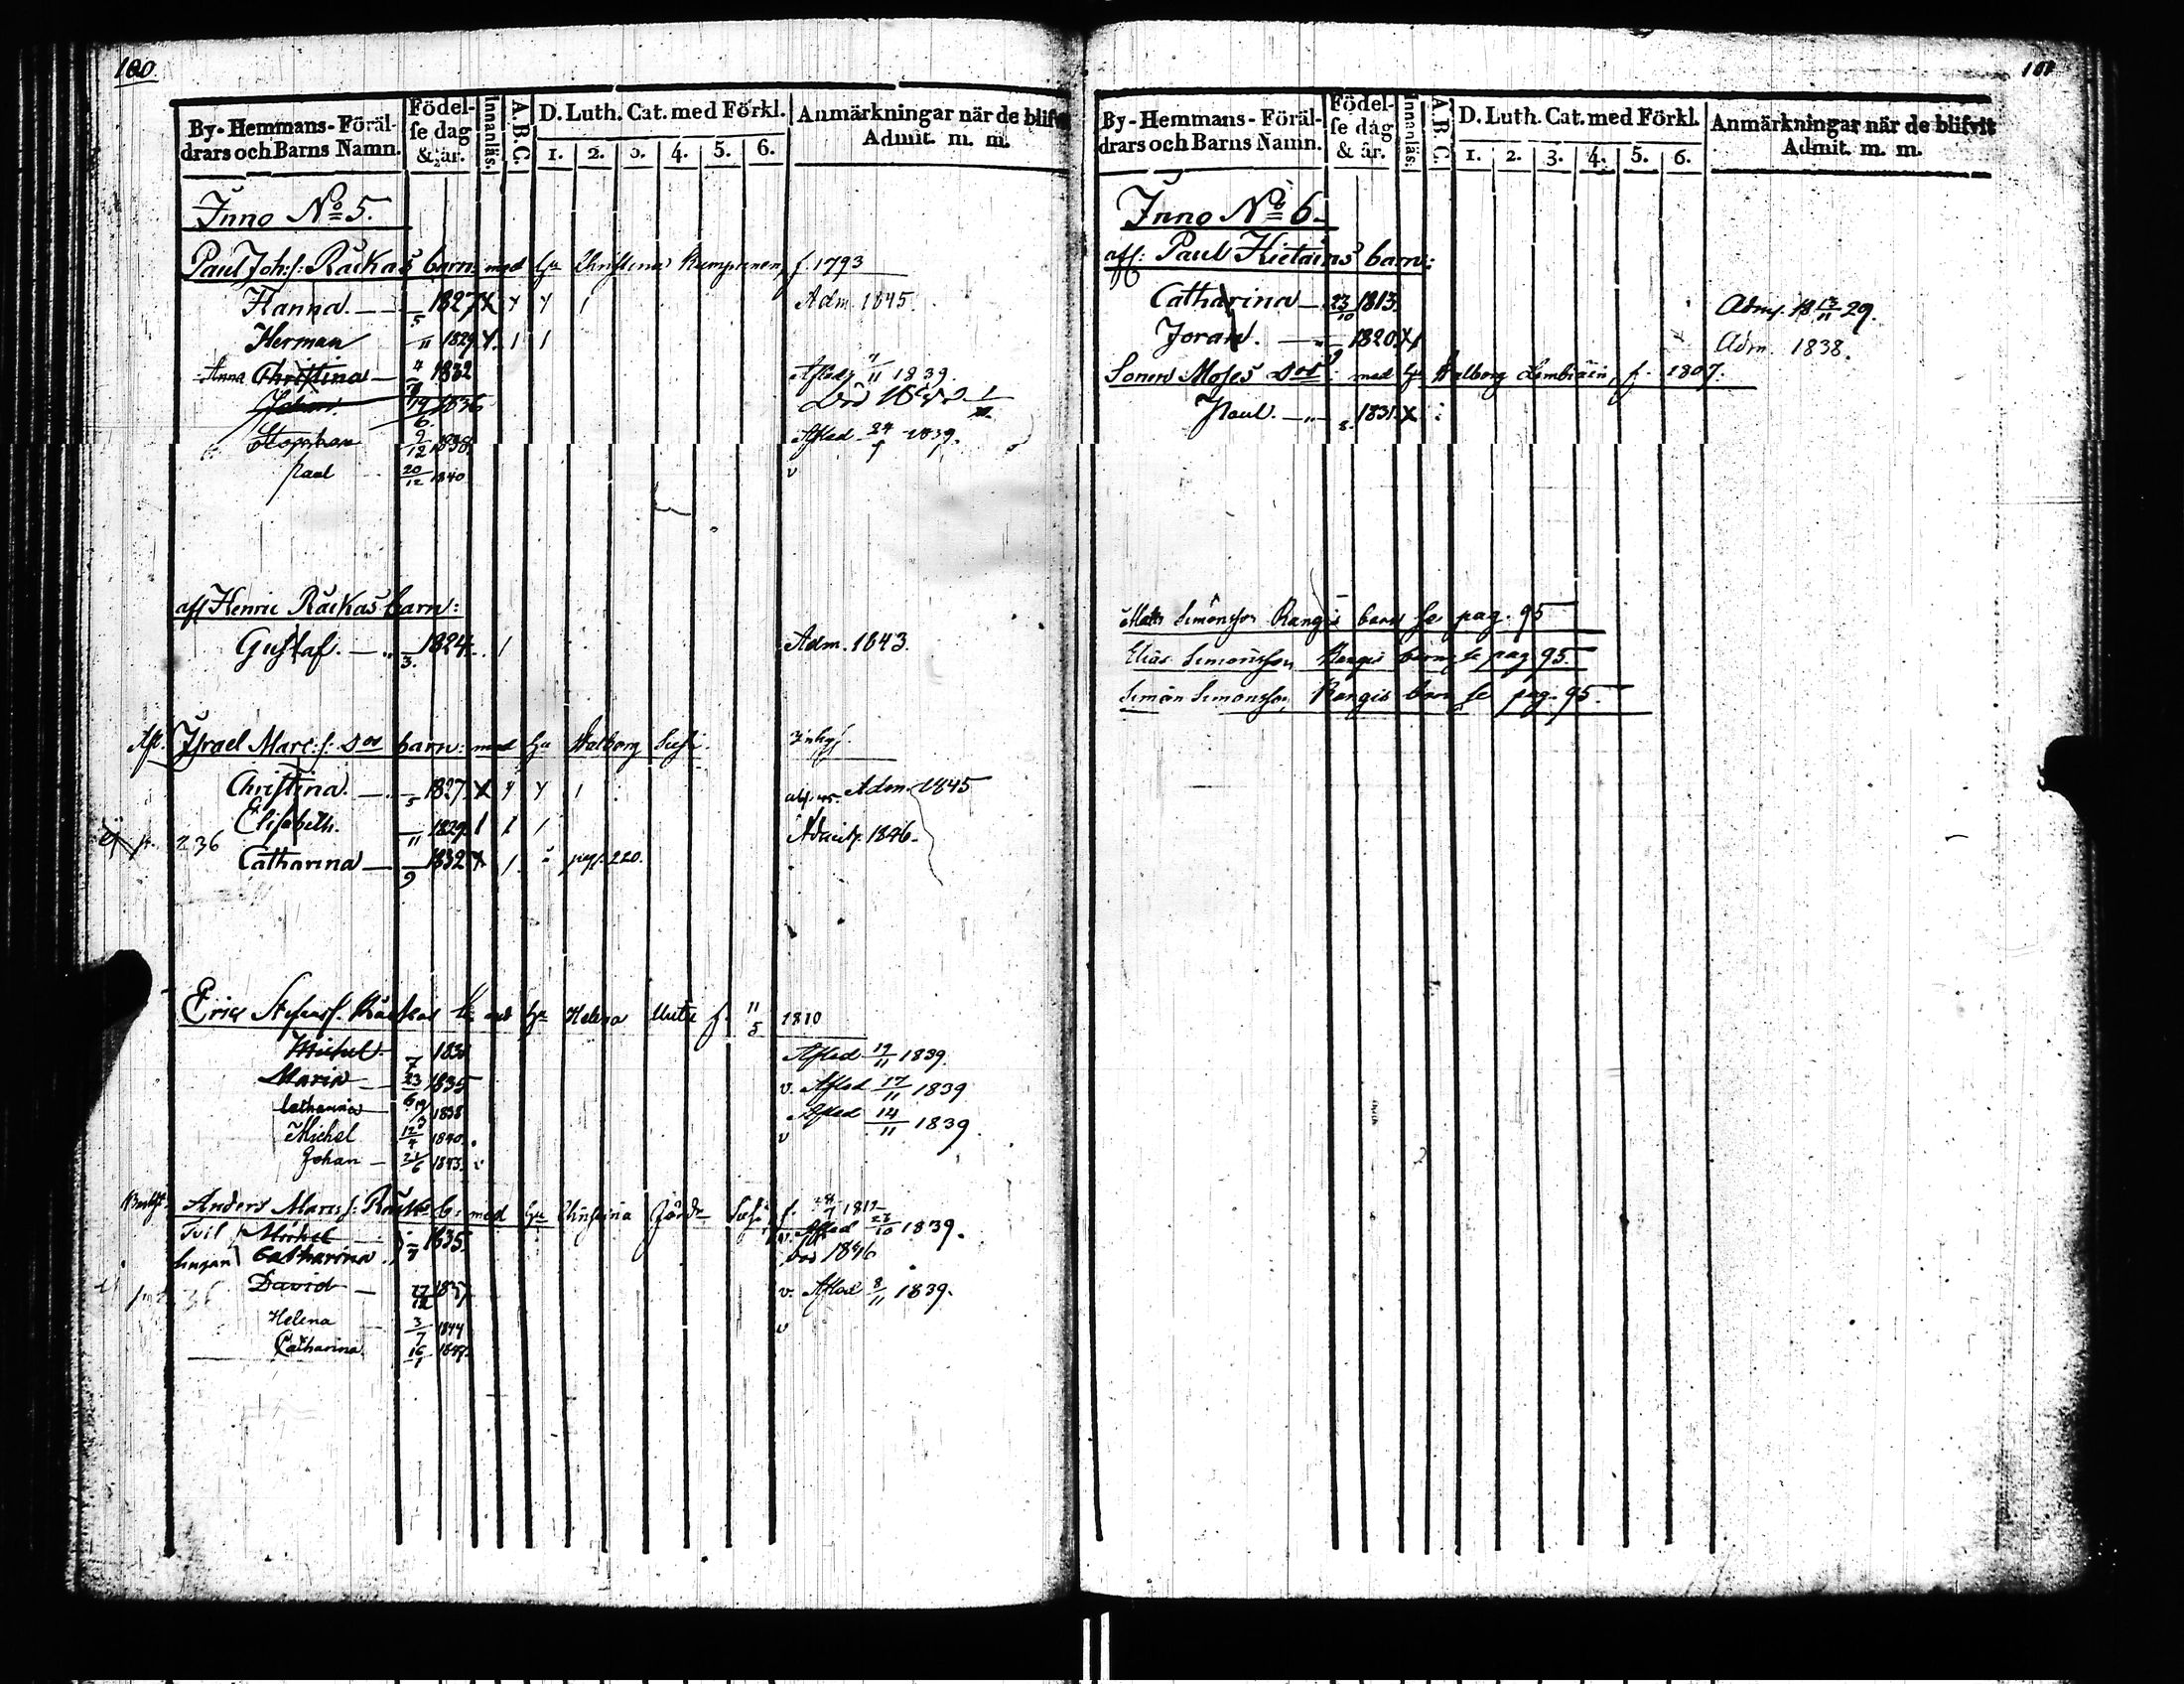 100.
By-Hemmans-Föräl-drars och Barns Namn. Födel-se dag & år. Innanläs. A.B.C. D. Luth. Cat. med Förkl. 1. 2. 3. 4. 5. 6. Anmärkningar när de blifvit Admit. m. m.
Inno No 5.
Paul Joh:s: Räikäs barn: med Hu Christina Kumpunen f. 1793
Hanna. 5 1827 X Y Y 1 Adm. 1845.
Herman 11 1829. Y. 1 1
Anna Christina 4/7 1832 Aflad 4/11 1839.
Johan 19/6 1836 Död
Stephan 9/12 1838. Aflad 24 1839.
Paul 20/12 1840 v
afl Henric Räikäs barn:
Gustaf. 3. 1824. 1 Adm. 1843.
Israel Marc:s: dos barn: med Hu Walborg
Christina. 5 1827. X Y Y 1 Adm. 1845
Elisabeth. 11 1829. 1 1 1 Admit. 1846.
236
Catharina 9 1832 X 1 pag. 220.
Eric Stephansf. Räikäs b. med Hu Helena f. 11/5 1810
Michel 7 183 Aflad 19/11 1839.
Maria 23/6 1835 v. Aflad 17/11 1839
Catharina 19 1838 Aflad 14/11 1839.
Michel 12/4 1840. v
Johan 21/6 1843.
Anders Marcs: Räikäs b: med Hu Christina f. 1812
Tvil Michel 7 1835. v. Aflad 23/10 1839.
lingar Catharina död 1846
David 27/12 1837 v. Aflad 8/11 1839.
Helena 3/7 1844 v
Catharina 16/1 1847.
101
By-Hemmans-Föräl-drars och Barns Namn. Födel-se dag & år. Innanläs. A.B.C. D. Luth. Cat. med Förkl. 1. 2. 3. 4. 5. 6. Anmärkningar när de blifvit Admit. m. m.
Inno No 6.
afl: Paul Hietains barn:
Catharina 23/10 1813. Adm. 18 13/11 29.
Joran. 1820. X 1 Adm. 1838.
Sonen Moses dos b. med Hu Walborg Lembiäin, f. 1807.
Paul. 8. 1831. X
Matts Simonsson Rangis barn se pag. 95
Elias Simonsson Rangis barn se pag. 95.
Simon Simonsson Rangis barn se pag. 95.